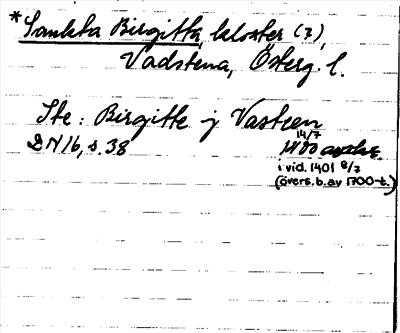 *Sankta Birgitta, kloster (?),
Vadstena, Österg. l.
Ste: Birgitte j Vasteen
DN 16, s. 38
14/7
1400 avskr.
i vid. 1401 8/7
(övers. b. av 1700-t.)